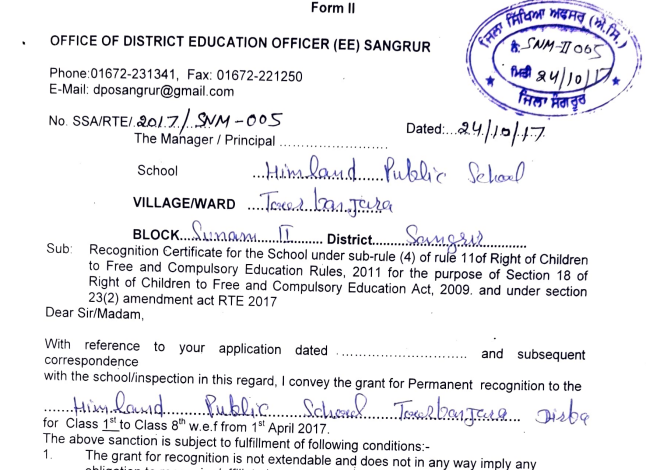 Form II
OFFICE OF DISTRICT EDUCATION OFFICER (EE) SANGRUR
ਜਿਲਾ ਸਿੱਖਿਆ ਅਫਸਰ (ਐ.ਸਿ.)
ਨੰ: SNM-II 005
ਮਿਤੀ 24/10/17
ਜਿਲਾ ਸੰਗਰੂਰ
Phone:01672-231341, Fax: 01672-221250
E-Mail: dposangrur@gmail.com
No. SSA/RTE/.2017/SNM-005
Dated:...24/10/17.
The Manager / Principal ........................
School ...Himland Public School
VILLAGE/WARD ....Toorbanjara
BLOCK...Sunam II......... District........Sangrur............
Sub: Recognition Certificate for the School under sub-rule (4) of rule 11of Right of Children
to Free and Compulsory Education Rules, 2011 for the purpose of Section 18 of
Right of Children to Free and Compulsory Education Act, 2009. and under section
23(2) amendment act RTE 2017
Dear Sir/Madam,
With reference to your application dated ............................. and subsequent
correspondence
with the school/inspection in this regard, I convey the grant for Permanent recognition to the
.......Himland Public School Toorbanjara Dirba
for Class 1st to Class 8th w.e.f from 1st April 2017.
The above sanction is subject to fulfillment of following conditions:-
1. The grant for recognition is not extendable and does not in any way imply any